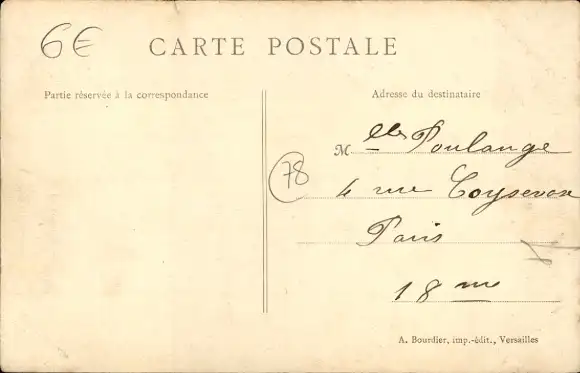 6€ CARTE POSTALE
Partie réservée à la correspondance
Adresse du destinataire
Mlles Poulange
78
4 rue Coysevox
Paris
18me
A. Bourdier, imp.-édit., Versailles